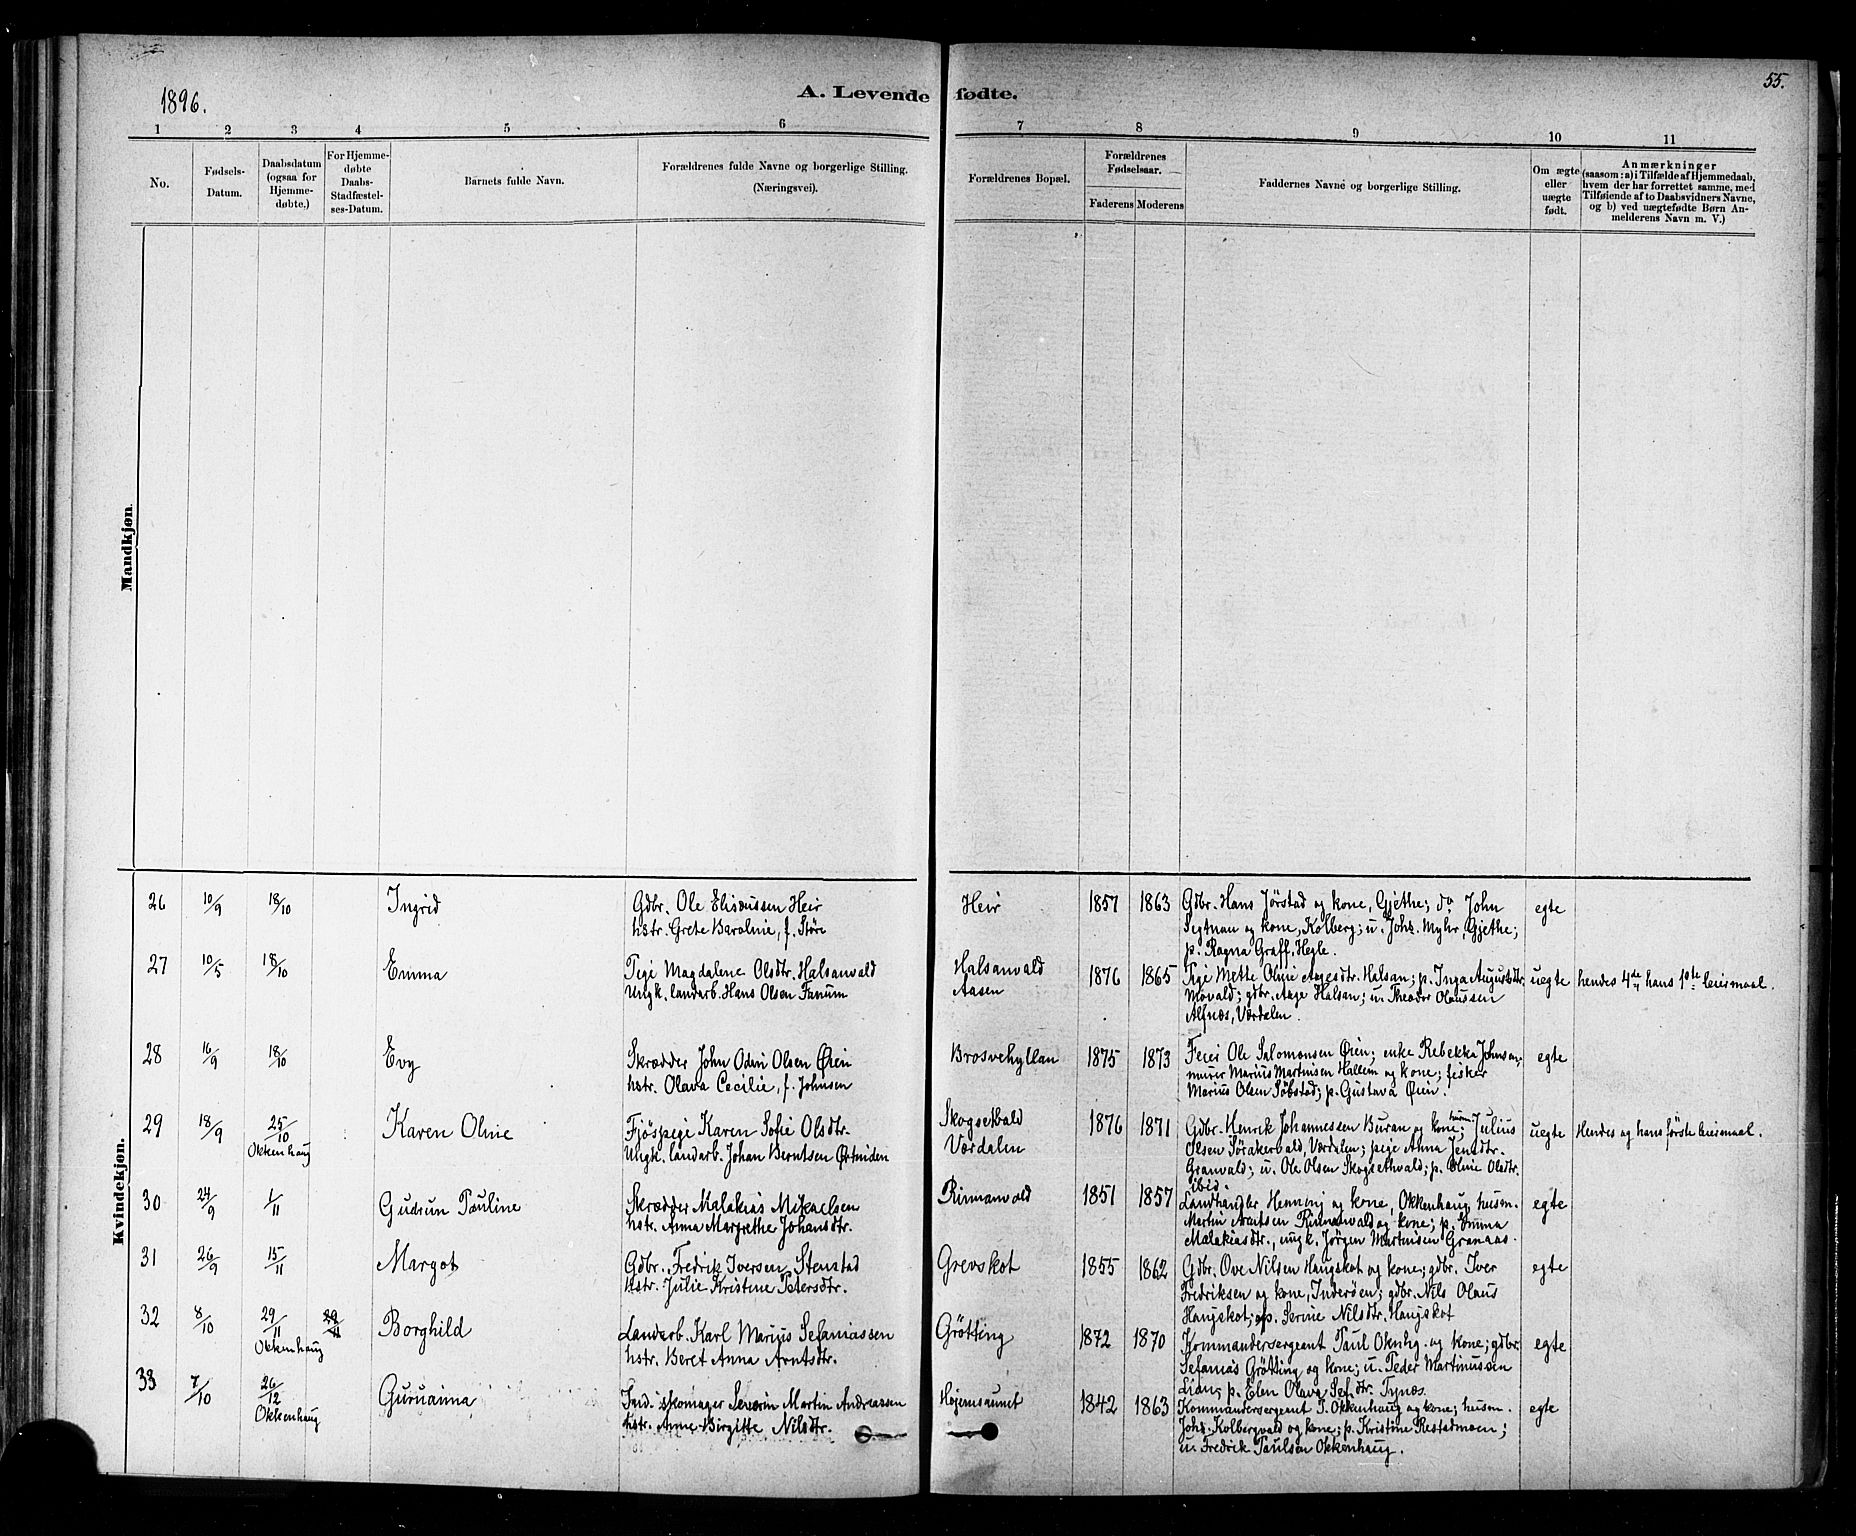 1896.
A. Levende fødte.
55.
1 2 3 4 5 6 7 8 9 10 11
No.
Fødsels-
Datum.
Daabsdatum
(ogsaa for
Hjemme-
døbte.)
For Hjemme-
døbte
Daabs-
Stadfæstel-
ses-Datum.
Barnets fulde Navn.
Forældrenes fulde Navne og borgerlige Stilling.
(Næringsvei).
Forældrenes Bopæl.
Forældrenes
Fødselsaar.
Faderens Moderens
Faddernes Navne og borgerlige Stilling.
Om ægte
eller
uægte
født.
Anmærkninger
(saasom: a) i Tilfælde af Hjemmedaab,
hvem der har forrettet samme, med
Tilføiende af to Daabsvidners Navne,
og b) ved uægtefødte Børn An-
melderens Navn m. V.)
Mandkjøn.
Kvindekjøn.
26 10/9 18/10 Ingrid
Gdbr. Ole Eliseussen Heir
hstr. Grete Baroline, f. Störe
Heir
1857 1863
Gdbr. Hans Jörstad og kone, Gjethe; do John
Segtnan og kone, Kolberg; u. Johs. Myhr, Gjethe;
p. Ragna Graff, Hegle.
egte
27 10/5 18/10 Emma
Pige Magdalene Olsdtr. Halsanvald
Ungk. landarb. Hans Olsen Fanum
Halsanvald
Aasen
1876 1865
Pige Mette Oline Aagesdtr. Halsan; p. Inga Augustdtr.
Movald; gdbr. Aage Halsan; u. Theodor Olaussen
Alfnæs, Værdalen.
uegte
hendes 4de hans 1ste leiermaal.
28 16/9 18/10 Evy
Skrædder John Odin Olsen Øien
hstr. Olava Cecilie, f. Johnsen
Brosvehyllan
1875 1873
Feier Ole Salomonsen Øien; enke Rebekka Johnsen;
murer Marius Martinsen Hallem og kone; fisker
Marius Olsen Söbstad; p. Gustava Øien.
egte
29 18/9 25/10 Okkenhaug
Karen Oline
Fjöspige Karen Sofie Olsdtr.
Ungk. landarb. Johan Berntsen Østnæs
Værdalen
1876 1871
Gdbr. Henrik Johannessen Buran og kone; husm. Julius
Olsen Söråkervald, Værdalen; pige Anna Jensdtr.
Granvald; u. Ole Olsen Skogsetvald; p. Oline Olsdtr.
ibid.
uegte
Hendes og hans förste leiermaal.
30 24/9 1/11 Gudrun Pauline
Skrædder Malakias Mikaelsen
hstr. Anna Margrethe Johansdtr.
Rinnanvald
1851 1857
Landhandler Henning og kone, Okkenhaug; husm.
Martin Arntsen Rinnanvald og kone; p. Emma
Malakiasdtr., ungk. Jörgen Martinsen Granaas.
egte
31 26/9 15/11 Margot
Gdbr. Fredrik Iversen Stenstad
hstr. Julie Kristine Petersdtr.
Grevskot
1855 1862
Gdbr. Ove Nilsen Haugskot og kone; gdbr. Iver
Fredriksen og kone, Inderöen; gdbr. Nils Olaus
Haugskot; p. Serine Nilsdtr. Haugskot
egte
32 8/10 29/11 Okkenhaug 29/11 Borghild
Landarb. Karl Marius Sefaniassen
hstr. Beret Anna Arntsdtr.
Grötting
1872 1870
Kommandersergeant Paul Oknhg. og kone; gdbr.
Sefanias Grötting og kone; u. Peder Martinussen
Lian; p. Elen Olava Sef.dtr. Tynæs.
egte
33 7/10 26/12 Okkenhaug Guruanna
Ind. skomager Severin Martin Andreassen
hstr. Anne Birgitte Nilsdtr.
Hojemsaunet
1842 1863
Kommandersergeant P. Okkenhaug og kone; husm.
Johs. Kolbergvald og kone; p. Kristine Restadmoen;
u. Fredrik Paulsen Okkenhaug.
egte